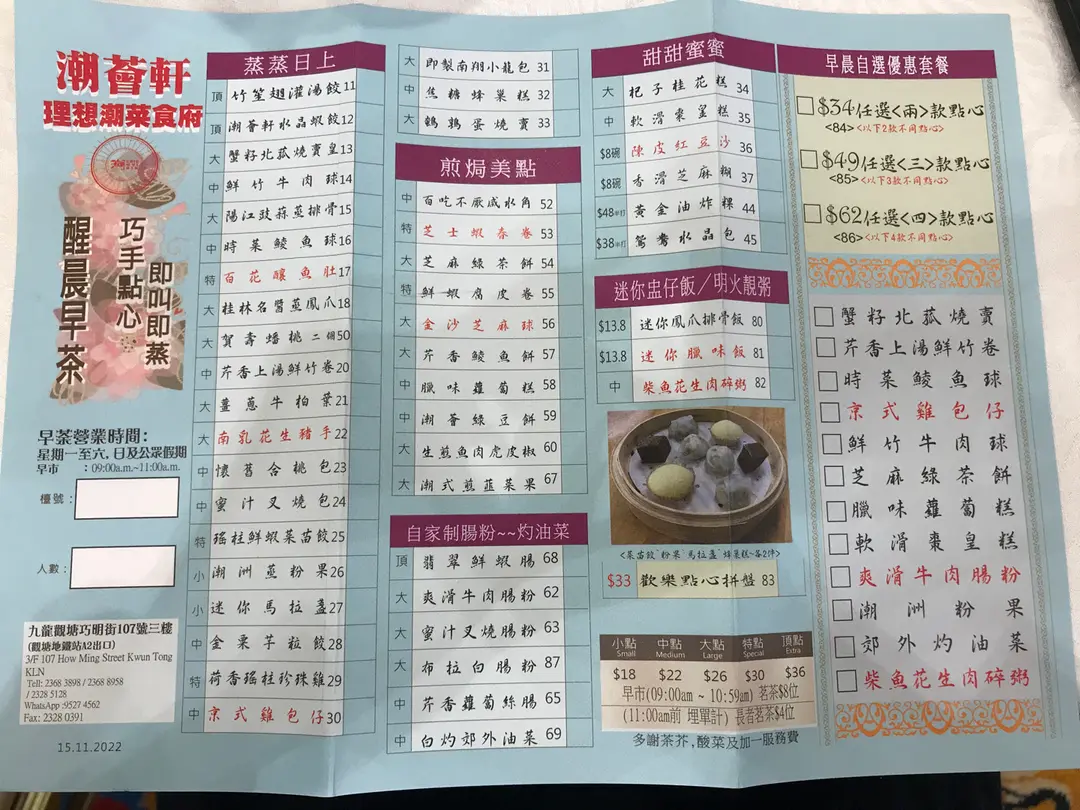 潮薈軒
理想潮菜食府
巧手點心
即叫即蒸
醒晨早茶
早茶營業時間:
星期一至六,日及公眾假期
早市 :09:00a.m.~11:00a.m.
檯號:
人數:
九龍觀塘巧明街107號三樓
(觀塘地鐵站A2出口)
3/F 107 How Ming Street Kwun Tong
KLN
Tell: 2368 3898 / 2368 8958
/ 2328 5128
WhatsApp :9527 4562
Fax: 2328 0391
15.11.2022
蒸蒸日上
頂 竹笙翅灌湯餃 11
頂 潮薈軒水晶蝦餃 12
大 蟹籽北菰燒賣皇 13
中 鮮竹牛肉球 14
大 陽江豉蒜蒸排骨 15
中 時菜鯪魚球 16
特 百花釀魚肚 17
大 桂林名醬蒸鳳爪 18
大 賀壽蟠桃二個 50
中 芹香上湯鮮竹卷 20
大 薑蔥牛柏葉 21
大 南乳花生豬手 22
中 懷舊合桃包 23
中 蜜汁叉燒包 24
特 瑤柱鮮蝦菜苗餃 25
小 潮洲蒸粉果 26
小 迷你馬拉盞 27
中 金粟芋粒餃 28
特 荷香瑤柱珍珠雞 29
中 京式雞包仔 30
大 即製南翔小龍包 31
中 焦糖蜂巢糕 32
大 鵪鶉蛋燒賣 33
煎焗美點
中 百吃不厭咸水角 52
特 芝士蝦春卷 53
大 芝麻綠茶餅 54
特 鮮蝦腐皮卷 55
大 金沙芝麻球 56
大 芹香鯪魚餅 57
中 臘味蘿蔔糕 58
中 潮薈綠豆餅 59
大 生煎魚肉虎皮椒 60
大 潮式煎韮菜果 67
自家制腸粉~~灼油菜
頂 翡翠鮮蝦腸 68
大 爽滑牛肉腸粉 62
大 蜜汁叉燒腸粉 63
大 布拉白腸粉 87
中 芹香蘿蔔絲腸 65
中 白灼郊外油菜 69
甜甜蜜蜜
大 杞子桂花糕 34
中 軟滑棗皇糕 35
$8碗 陳皮紅豆沙 36
$8碗 香滑芝麻糊 37
$48半打 黃金油炸粿 44
$38半打 鴛鴦水晶包 45
迷你盅仔飯/明火靚粥
$13.8 迷你鳳爪排骨飯 80
$13.8 迷你臘味飯 81
中 柴魚花生肉碎粥 82
<菜苗餃*粉果*馬拉盞*蜂巢糕~各2件>
$33 歡樂點心拼盤 83
小點 中點 大點 特點 頂點
Small Medium Large Special Extra
$18 $22 $26 $30 $36
早市(09:00am ~ 10:59am) 茗茶$8位
(11:00am前 埋單計) 長者茗茶$4位
多謝茶芥,酸菜及加一服務費
早晨自選優惠套餐
$34任選<兩>款點心
<84><以下2款不同點心>
$49任選<三>款點心
<85><以下3款不同點心>
$62任選<四>款點心
<86><以下4款不同點心>
蟹籽北菰燒賣
芹香上湯鮮竹卷
時菜鯪魚球
京式雞包仔
鮮竹牛肉球
芝麻綠茶餅
臘味蘿蔔糕
軟滑棗皇糕
爽滑牛肉腸粉
潮洲粉果
郊外灼油菜
柴魚花生肉碎粥